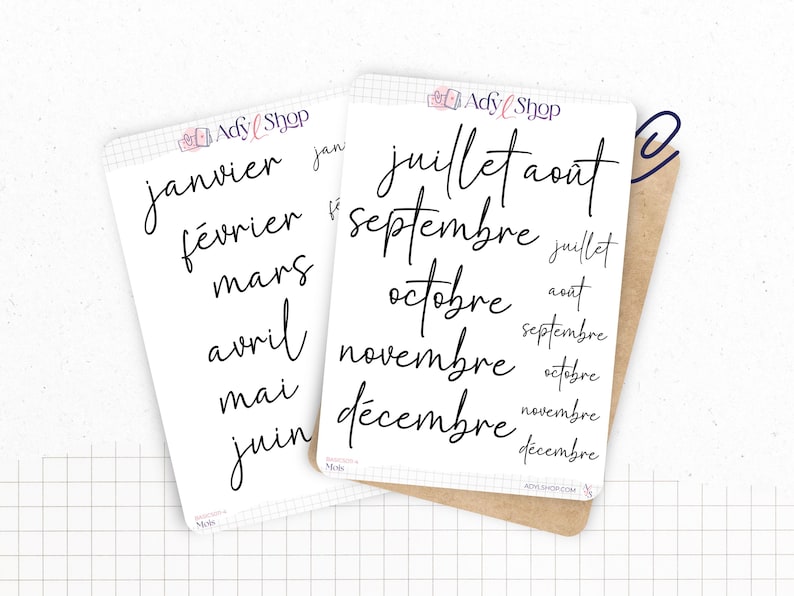 Adyl Shop
janvier
février
mars
avril
mai
juin
Mois
Adyl Shop
juillet août
septembre
octobre
novembre
décembre
juillet
août
septembre
octobre
novembre
décembre
Mois
ADYLSHOP.COM